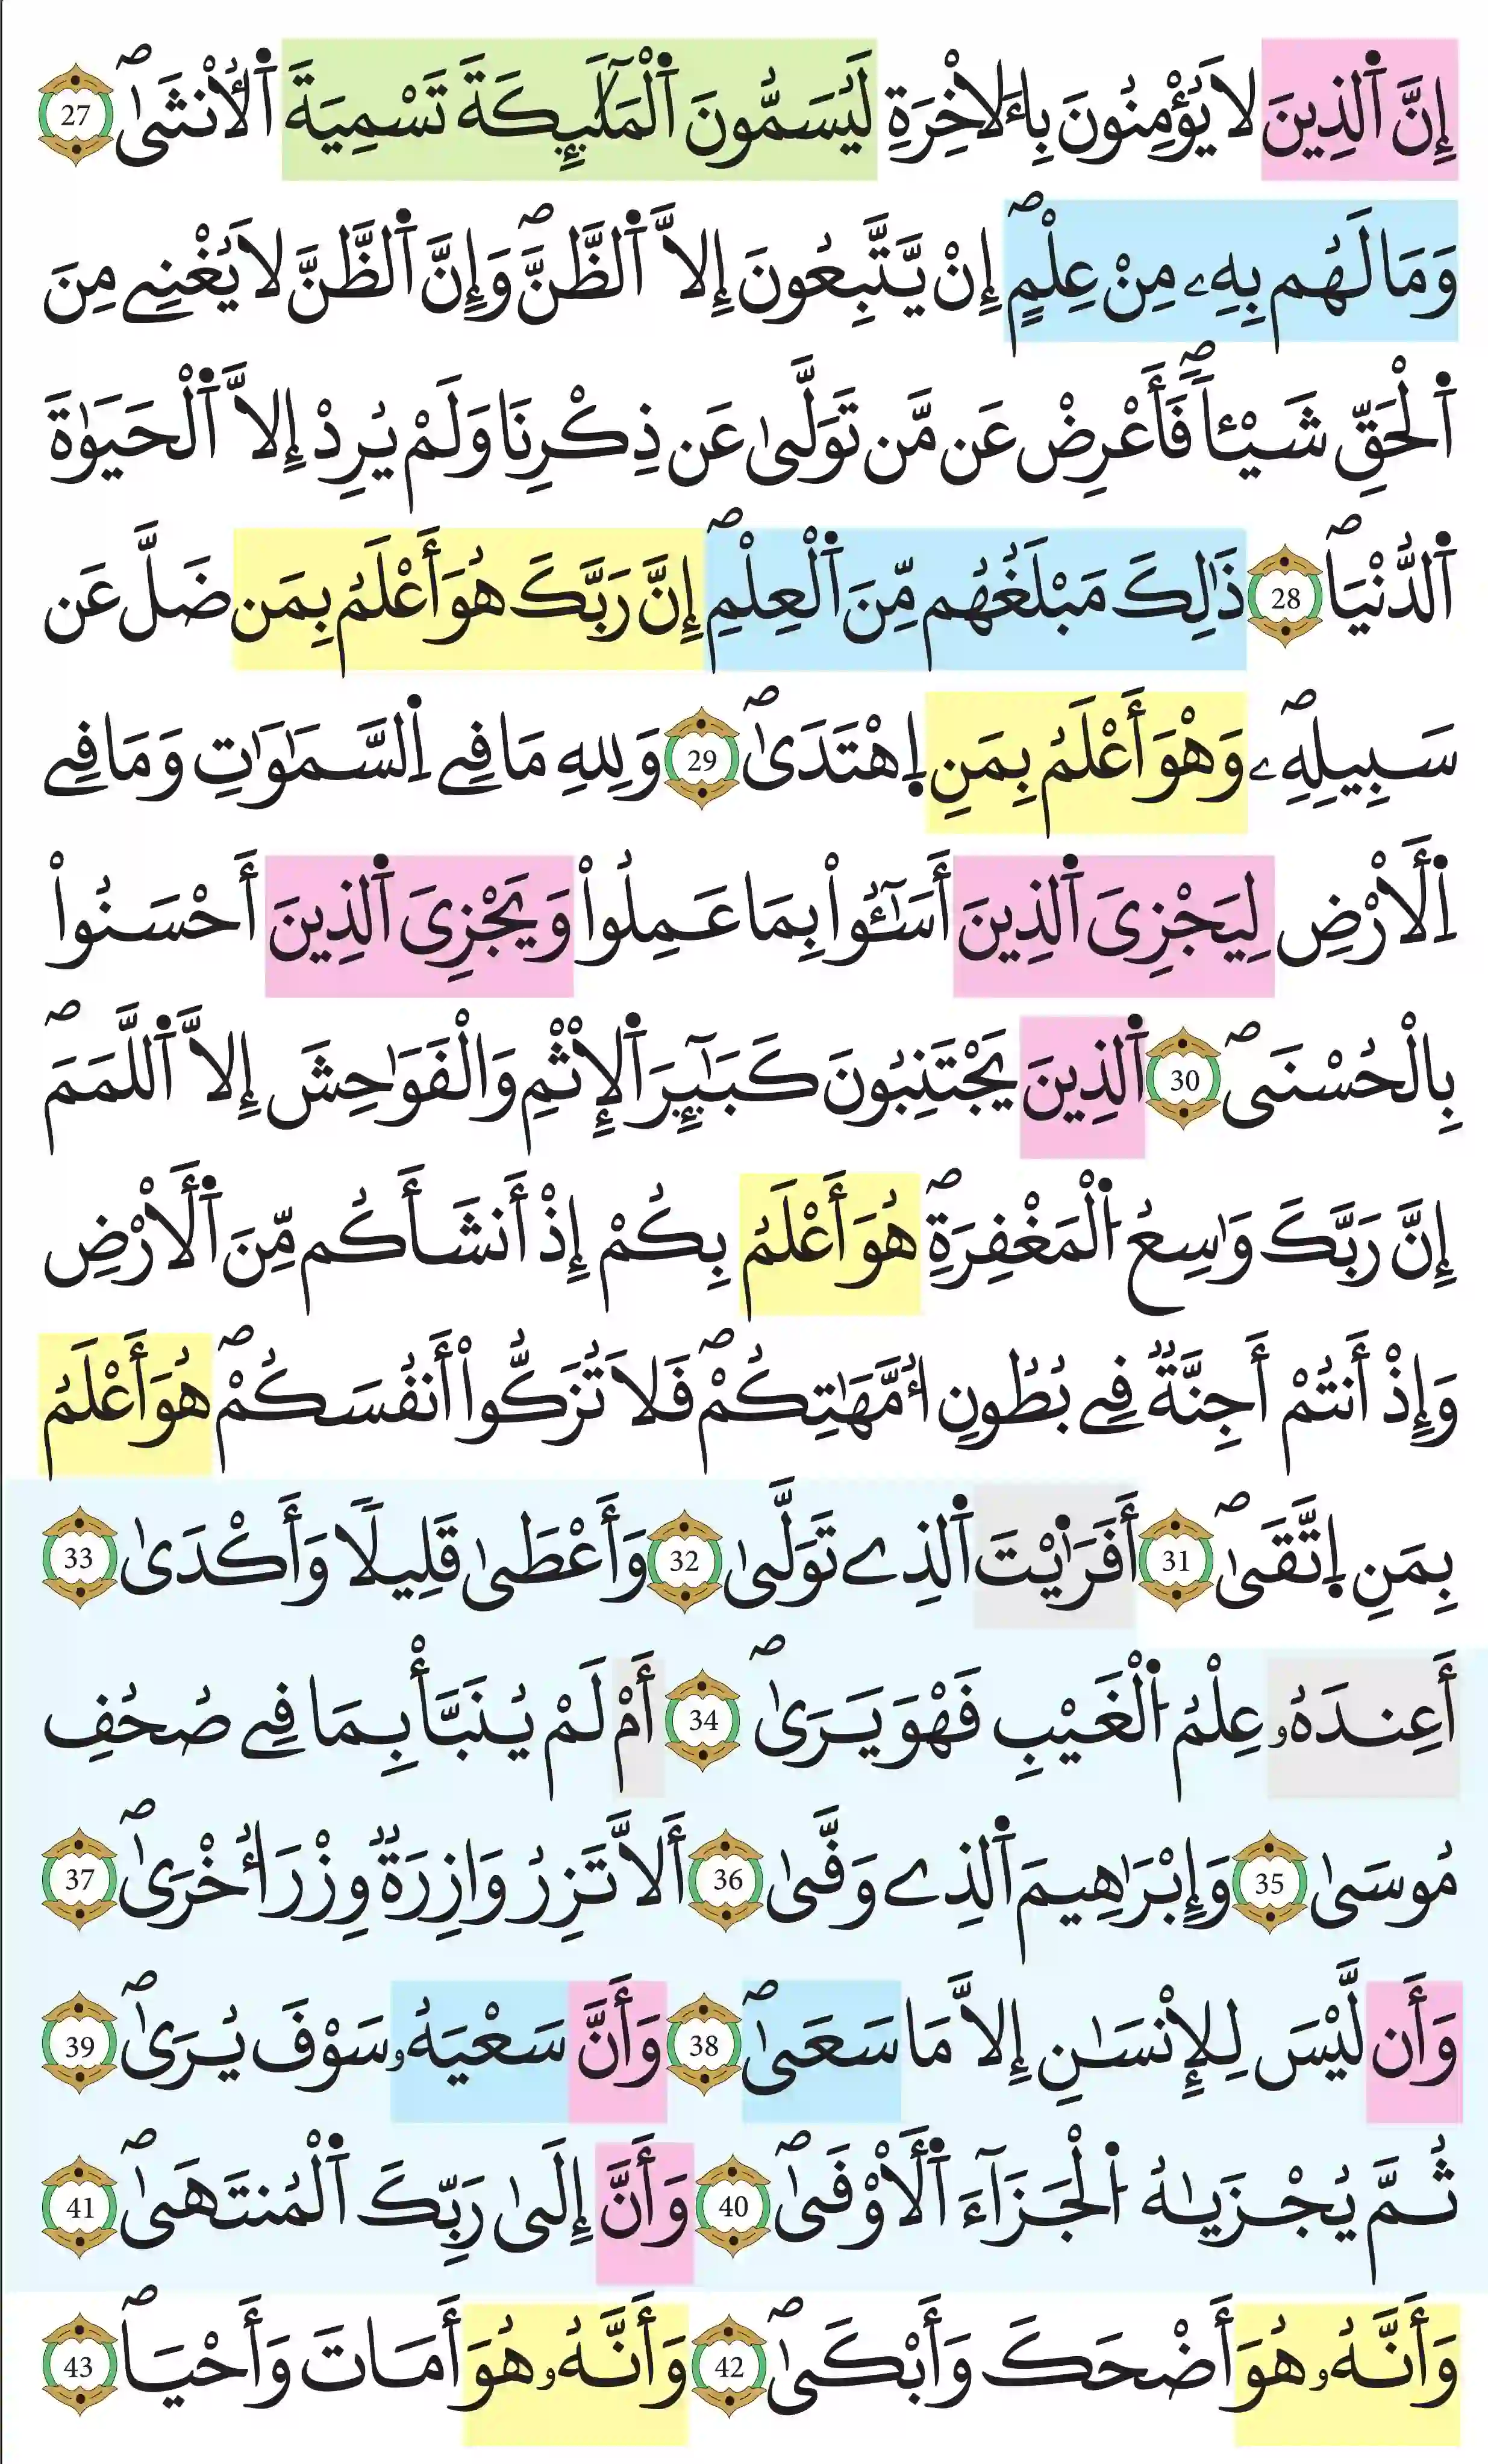 إِنَّ ٱلذِينَ لَا يُؤْمِنُونَ بِالَاخِرَةِ لَيُسَمُّونَ ٱلْمَلَٰٓئِكَةَ تَسْمِيَةَ ٱلُانْثَىٰۖ 27
وَمَا لَهُم بِهِۦ مِنْ عِلْمٍۖ إِنْ يَّتَّبِعُونَ إِلَّا ٱلظَّنَّۖ وَإِنَّ ٱلظَّنَّ لَا يُغْنِے مِنَ
ٱلْحَقِّ شَيْـٔاٗۖ فَأَعْرِضْ عَن مَّن تَوَلَّىٰ عَن ذِكْرِنَا وَلَمْ يُرِدْ إِلَّا ٱلْحَيَوٰةَ
ٱلدُّنْيَاۖ 28 ذَٰلِكَ مَبْلَغُهُم مِّنَ ٱلْعِلْمِۖ إِنَّ رَبَّكَ هُوَ أَعْلَمُ بِمَن ضَلَّ عَن
سَبِيلِهِۦۖ وَهْوَ أَعْلَمُ بِمَنِ اِهْتَدَىٰۖ 29 وَلِلهِ مَا فِے اِلسَّمَٰوَٰتِ وَمَا فِے
اِلَارْضِ لِيَجْزِىَ ٱلذِينَ أَسَٰٓـُٔواْ بِمَا عَمِلُواْ وَيَجْزِىَ ٱلذِينَ أَحْسَنُواْ
بِالْحُسْنَىۖ 30 ٱلذِينَ يَجْتَنِبُونَ كَبَٰٓئِرَ ٱلِاثْمِ وَالْفَوَٰحِشَ إِلَّا ٱللَّمَمَۖ
إِنَّ رَبَّكَ وَٰسِعُ اُلْمَغْفِرَةِۖ هُوَ أَعْلَمُ بِكُمْ إِذْ أَنشَأَكُم مِّنَ ٱلَارْضِ
وَإِذْ أَنتُمْ أَجِنَّةٞ فِے بُطُونِ أُمَّهَٰتِكُمْۖ فَلَا تُزَكُّواْ أَنفُسَكُمْۖ هُوَ أَعْلَمُ
بِمَنِ اِتَّقَىٰۖ 31 أَفَرَٰيْتَ ٱلذِے تَوَلَّىٰ 32 وَأَعْطَىٰ قَلِيلٗا وَأَكْدَىٰ 33
أَعِندَهُۥ عِلْمُ اُلْغَيْبِ فَهْوَ يَرَىٰۖ 34 أَمْ لَمْ يُنَبَّأْ بِمَا فِے صُحُفِ
مُوسَىٰ 35 وَإِبْرَٰهِيمَ ٱلذِے وَفَّىٰ 36 أَلَّا تَزِرُ وَازِرَةٞ وِزْرَ أُخْرَىٰۖ 37
وَأَن لَّيْسَ لِلِانسَٰنِ إِلَّا مَا سَعَىٰۖ 38 وَأَنَّ سَعْيَهُۥ سَوْفَ يُرَىٰۖ 39
ثُمَّ يُجْزَيٰهُ اُلْجَزَآءَ ٱلَاوْفَىٰۖ 40 وَأَنَّ إِلَىٰ رَبِّكَ ٱلْمُنتَهَىٰۖ 41
وَأَنَّهُۥ هُوَ أَضْحَكَ وَأَبْكَىٰۖ 42 وَأَنَّهُۥ هُوَ أَمَاتَ وَأَحْيَاۖ 43